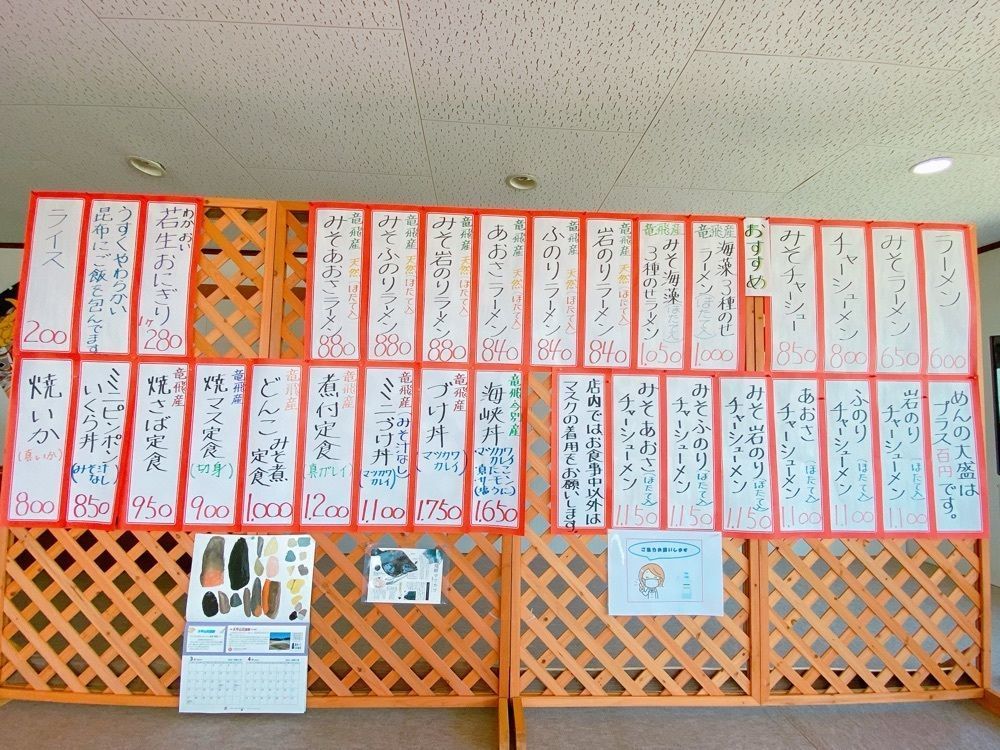 ラーメン
600
みそラーメン
650
チャーシューメン
800
みそチャーシュー
850
おすすめ
竜飛産
海藻3種のせ
ラーメン(ほたて入)
1000
竜飛産
みそ海藻(ほたて入)
3種のせラーメン
1050
竜飛産 天然(ほたて入)
岩のりラーメン
840
竜飛産 天然(ほたて入)
ふのりラーメン
840
竜飛産 天然(ほたて入)
あおさラーメン
840
竜飛産 天然(ほたて入)
みそ岩のりラーメン
880
竜飛産 天然(ほたて入)
みそふのりラーメン
880
竜飛産 天然(ほたて入)
みそあおさラーメン
880
わかおい
若生おにぎり
1ケ 280
うすくやわらかい
昆布にご飯を包んでます
ライス
200
めんの大盛は
プラス百円です。
岩のり(ほたて入)
チャーシューメン
1.100
ふのり(ほたて入)
チャーシューメン
1.100
あおさ(ほたて入)
チャーシューメン
1.100
みそ岩のり(ほたて入)
チャーシューメン
1.150
みそふのり(ほたて入)
チャーシューメン
1.150
みそあおさ(ほたて入)
チャーシューメン
1.150
店内ではお食事中以外は
マスクの着用をお願いします
竜飛・別産
海峡丼
マツカワカレイ
サーモン
1.650
竜飛産
づけ丼
(マツカワカレイ)
1.750
竜飛産
ミニづけ丼
みそ汁なし
(マツカワカレイ)
1.100
竜飛産
煮付定食
(真ガレイ)
1.200
竜飛産
どんこみそ煮
定食
1.000
竜飛産
焼マス定食
(切身)
900
竜飛産
焼さば定食
950
ミニピンポン
いくら丼
(みそ汁なし)
850
焼いか
(真いか)
800
ご協力お願いします
3
4